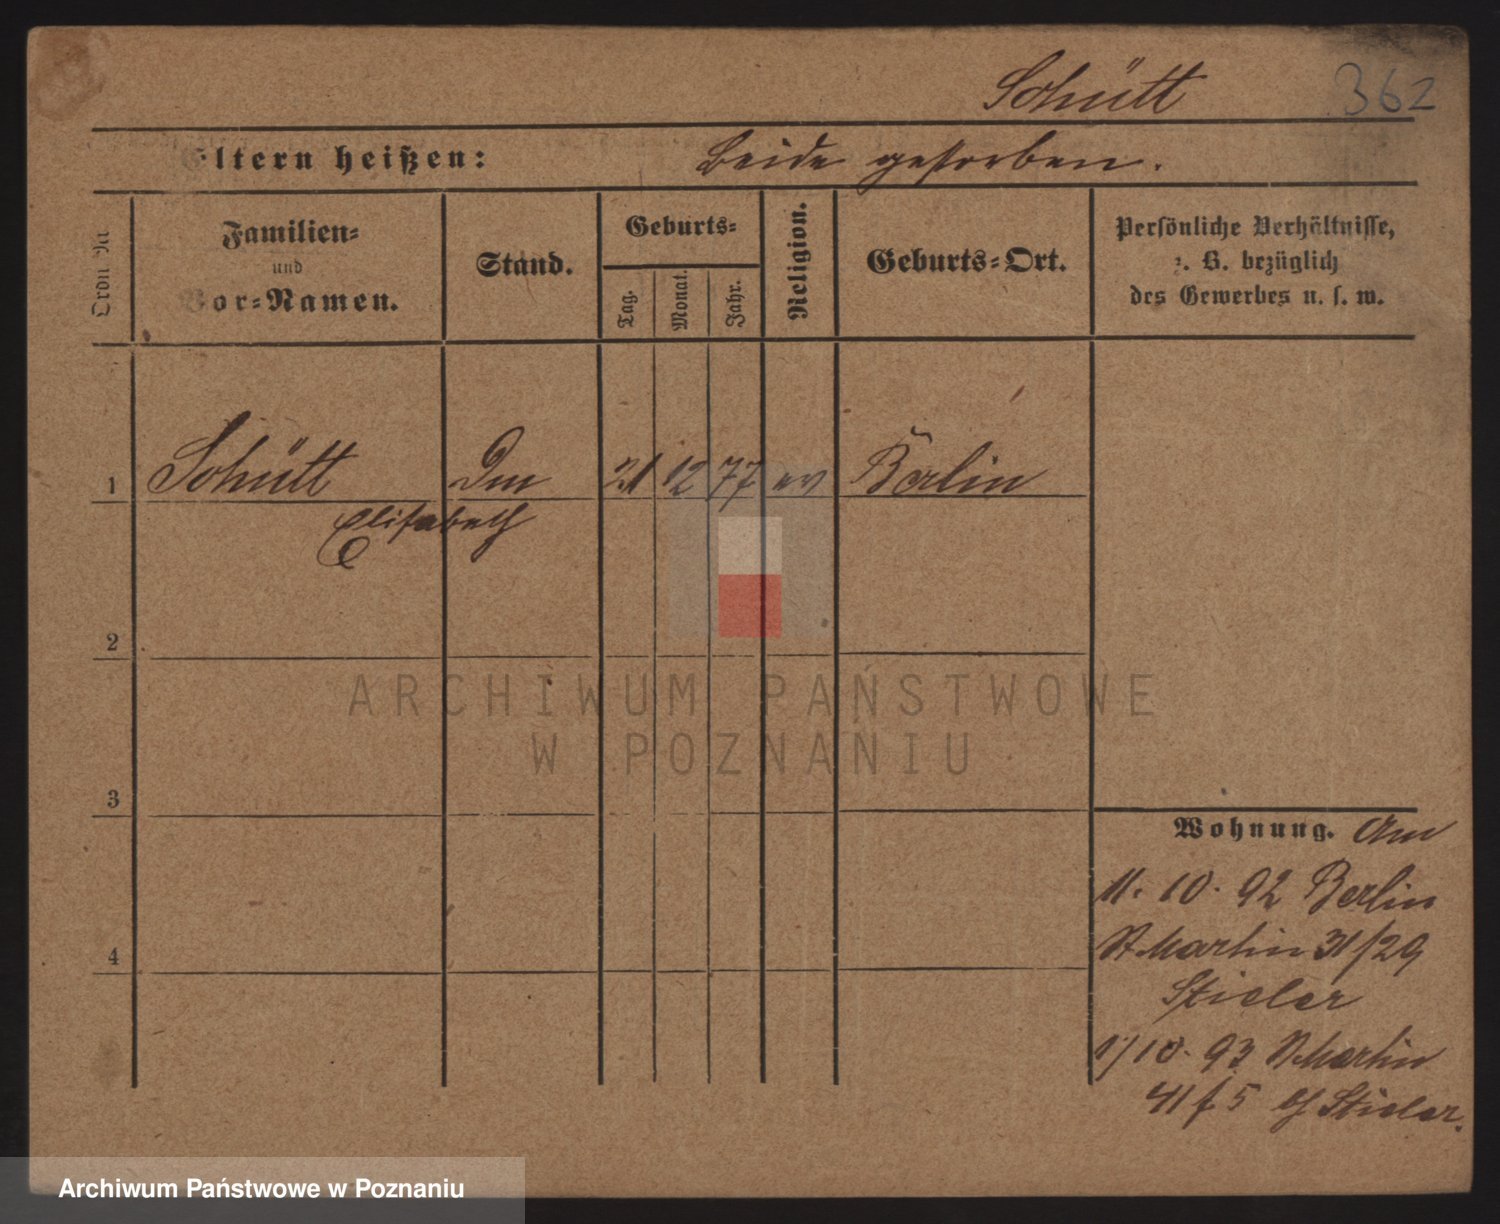 Schütt 362
Eltern heißen: Beide gestorben.
Ordn №
Familien-
und
Vor-Namen.
Stand.
Geburts-
Tag.
Monat.
Jahr.
Religion.
Geburts-Ort.
Persönliche Verhältnisse,
z. B. bezüglich
des Gewerbes u. s. w.
1 Schütt 21 12 77 ev Berlin
Elisabeth
2
3
4
Wohnung. Am
11. 10. 92 Berlin
St Martin 31/29
Stieler
1/10. 93 St Martin
41 5 Stieler.
ARCHIWUM PAŃSTWOWE
W POZNANIU
Archiwum Państwowe w Poznaniu